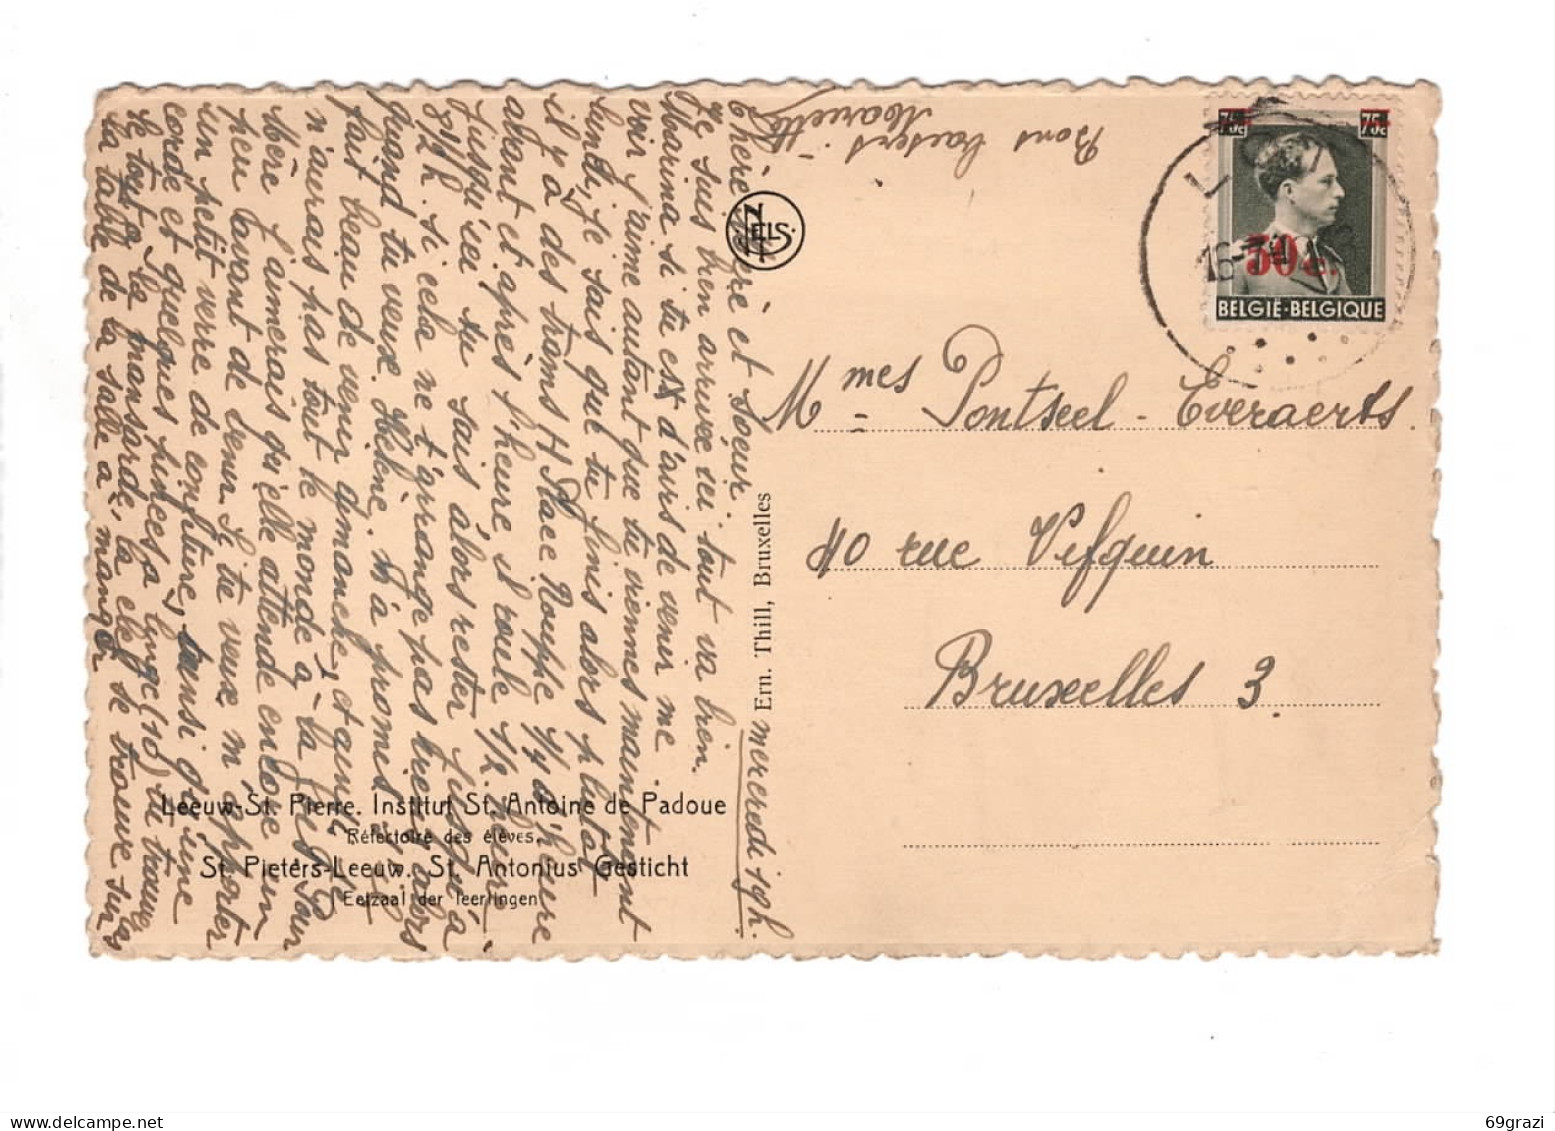 mercredi 19h.
Chère Mère et soeur.
Je suis bien arrivée ici tout va bien.
Marina si tu est d'avis de venir me
voir j'aime autant que tu viennes maintenant
lundi, je sais que tu finis alors plutot
il y a des trams H Place Rouppe 1/4 d'heure
avant et après l'heure il roule 1/2 heure
jusqu'ici tu sais alors rester jusqu'à
8 1/2 h. si cela ne t'arrange pas bien alors
quand tu veux. Hélène m'a promis s'il
fait beau de venir dimanche, et ainsi je
n'aurais pas tout le monde à la fois. Pour
Mère j'aimerais qu'elle attende encore un
peu avant de venir. Si tu veux m'apporter
un petit verre de confiture, ainsi qu'une
corde et quelques pinces a linge (10) tu trouve
le tout a la mansarde, la clef se trouve sur
la table de la salle à manger
Bons baisers
Marcelle
NELS.
75c 75c
50c.
BELGIË-BELGIQUE
Mmes Pontseel - Everaerts.
40 rue Vifquin
Bruxelles 3.
Ern. Thill, Bruxelles
Leeuw-St. Pierre. Institut St. Antoine de Padoue
Réfectoire des élèves.
St. Pieters-Leeuw. St. Antonius Gesticht
Eetzaal der leerlingen
69grazi